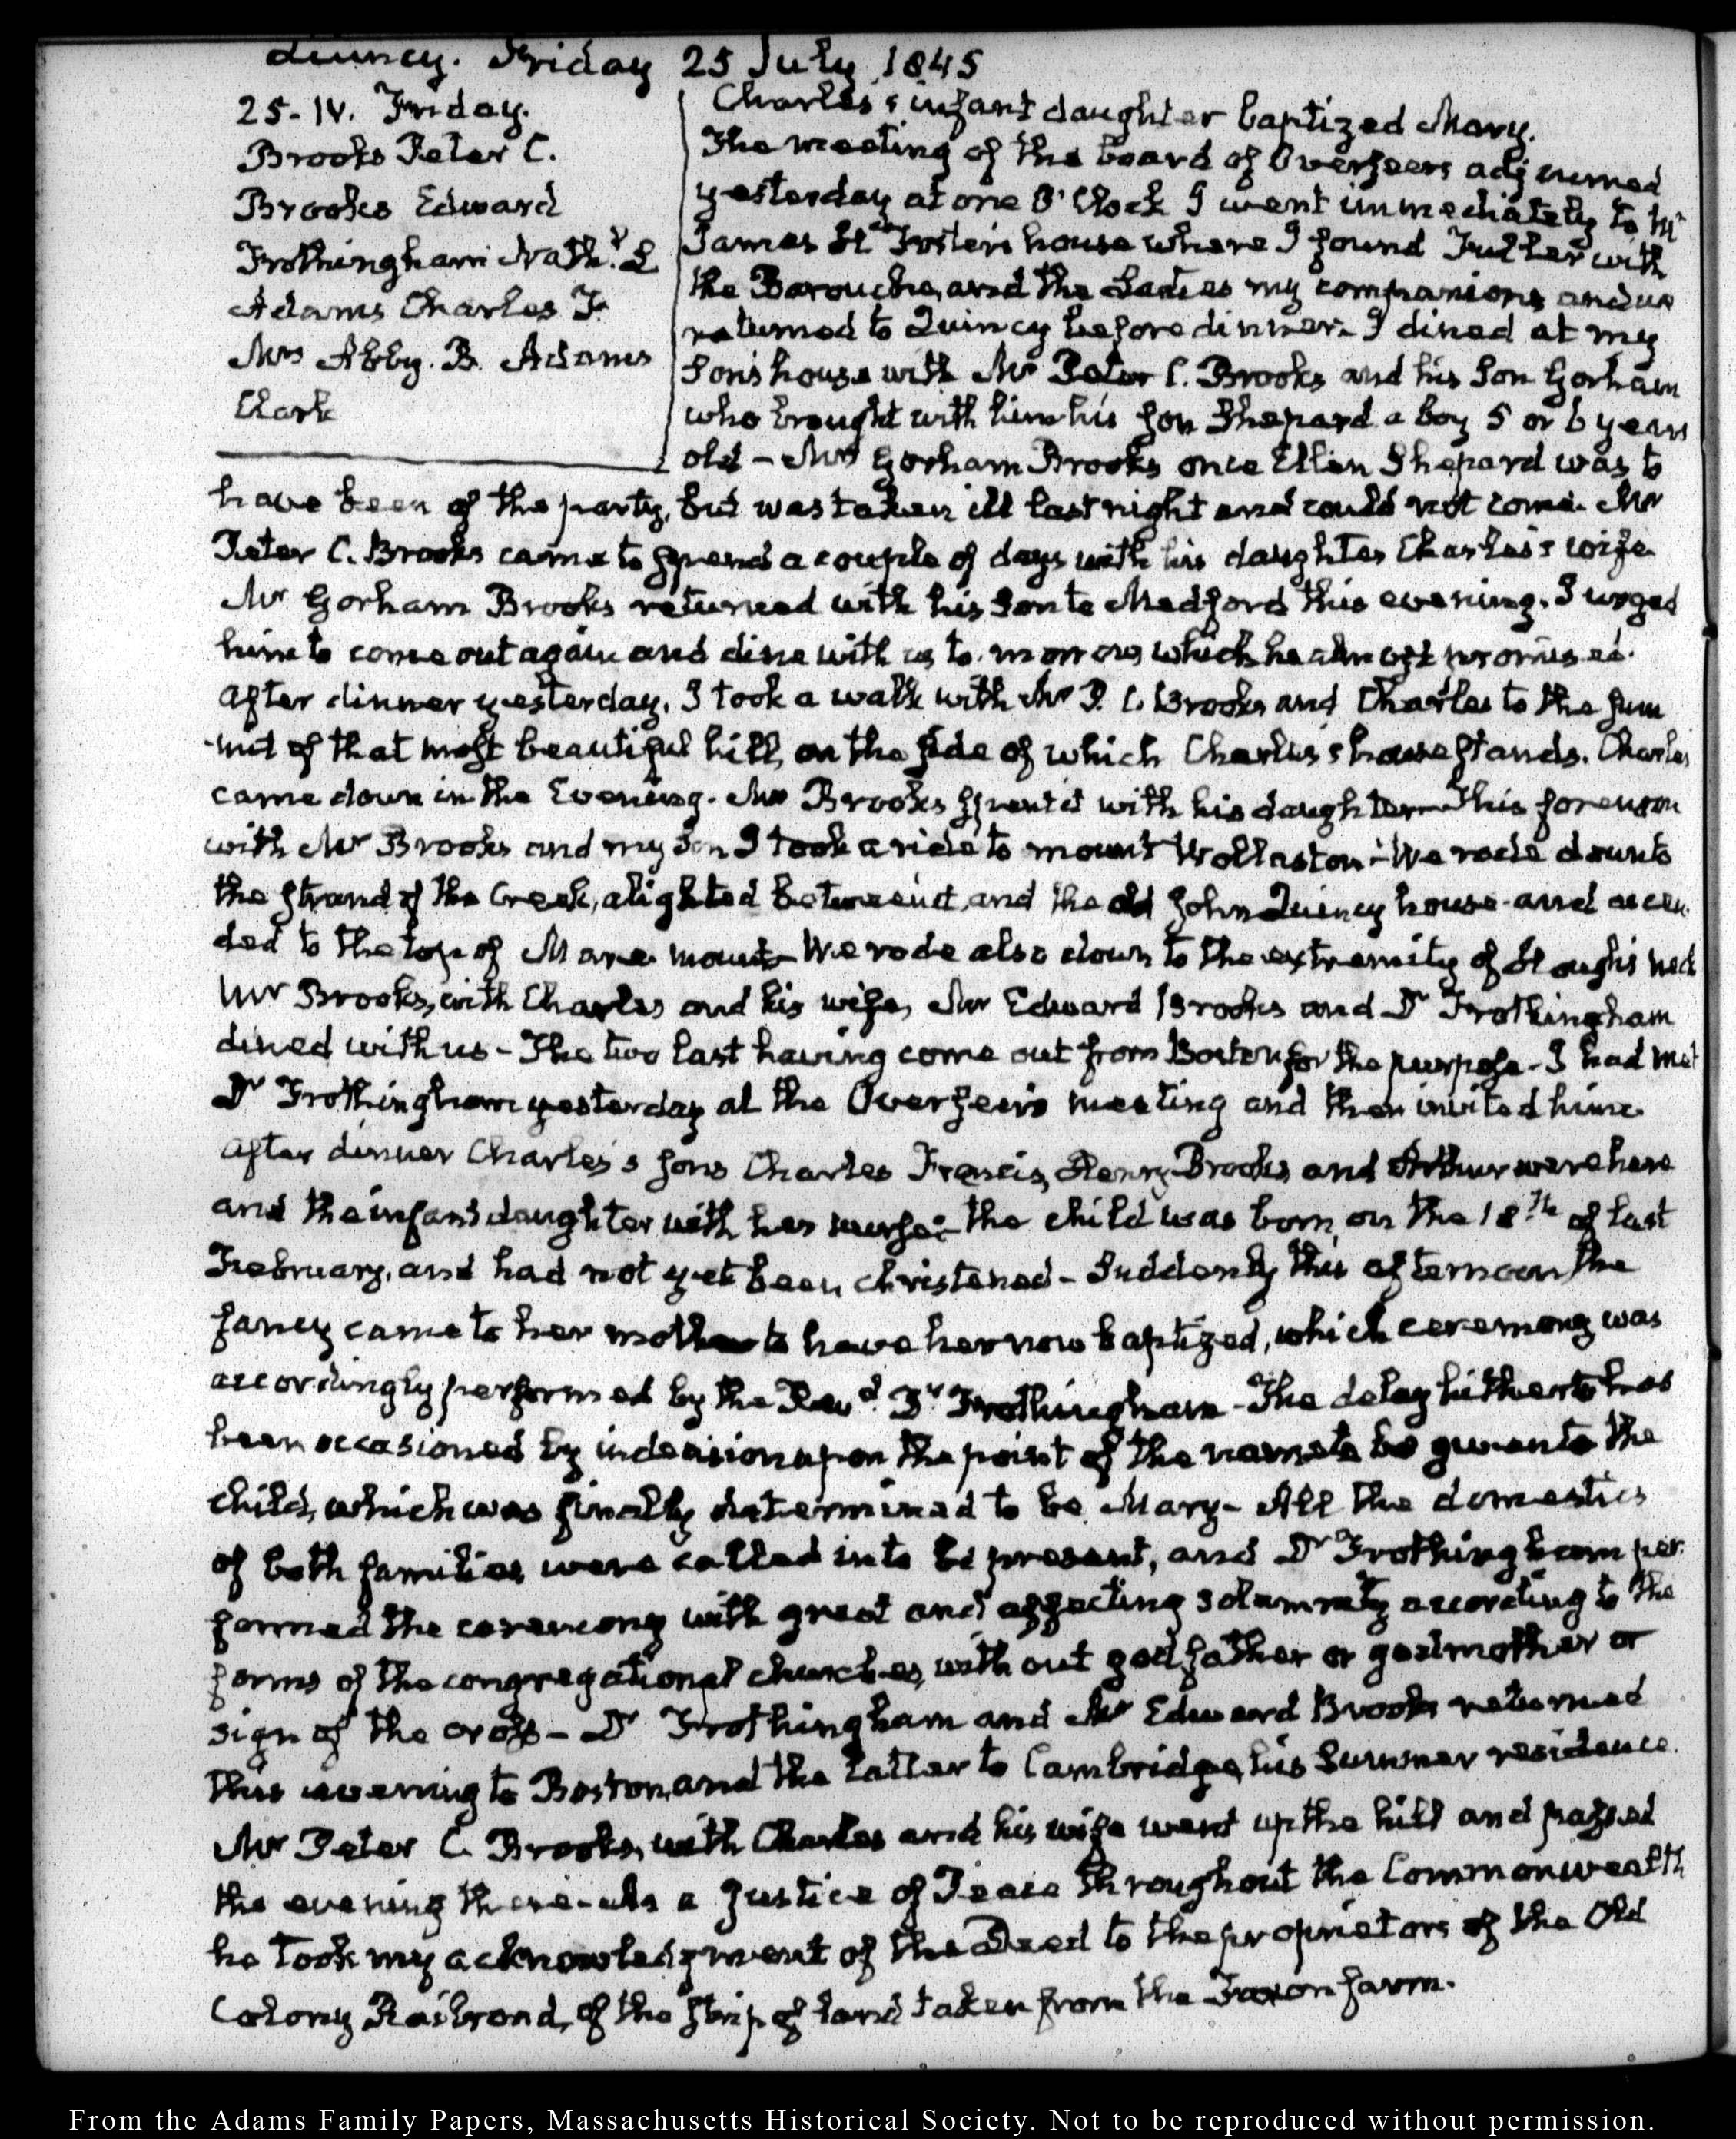 Quincy. Friday 25 July 1845
25. IV. Friday.
Brooks Peter C.
Brooks Edward
Frothingham Nathl. L
Adams Charles F.
Mrs Abby. B. Adams
Clark
Charles's infant daughter baptized Mary.
The meeting of the board of Overseers adjourned
yesterday at one O'Clock I went immediately to Mr
James H Foster's house where I found with
the Barouche, and the Ladies my companions and we
returned to Quincy before dinner. I dined at my
Son's house with Mr Peter C. Brooks and his Son Gorham
who brought with him his son Shepard a boy 5 or 6 years
old – Mrs Gorham Brooks once Ellen Shepard was to
have been of the party, but was taken ill last night and could not come. Mr
Peter C. Brooks came to spend a couple of days with his daughter Charles's wife
Mr Gorham Brooks returned with his Son to Medford this evening. I urged
him to come out again and dine with us to-morrow which he almost promised.
After dinner yesterday, I took a walk with Mr P. C. Brooks and Charles to the sum
mit of that most beautiful hill, on the side of which Charles's house stands. Charles
came down in the Evening. Mr Brooks spent it with his daughter – This forenoon
with Mr Brooks and my Son I took a ride to mount Wollaston – We rode down to
the strand of the Creek, alighted between it, and the old John Quincy house and ascen
ded to the top of Mare mount – We rode also down to the extremity of Hough's neck
Mr Brooks, with Charles and his wife, Mr Edward Brooks and Dr Frothingham
dined with us – The two last having come out from Boston for the purpose – I had met
Dr Frothingham yesterday at the Overseers meeting and then invited him.
After dinner Charles's sons Charles Francis, Henry Brooks and Arthur were here
and the infant daughter with her nurse – the child was born, on the 18th of last
February, and had not yet been christened – Suddenly this afternoon the
fancy came to her mother to have her now baptized, which ceremony was
accordingly performed by the Revd. Dr Frothingham – The delay hitherto has
been occasioned by indecision upon the point of the name to be given to the
child, which was finally determined to be Mary – All the domestics
of both families were called in to be present, and Dr Frothingham per
formed the ceremony with great and affecting solemnity according to the
forms of the congregational churches, without godfather or godmother or
sign of the cross – Dr Frothingham and Mr Edward Brooks returned
this evening to Boston, and the latter to Cambridge, his Summer residence.
Mr Peter C. Brooks, with Charles and his wife went up the hill and passed
the evening there – As a Justice of Peace throughout the Commonwealth
he took my acknowledgment of the Deed to the proprietors of the Old
Colony Railroad, of the strip of land taken from the Faxon farm.
From the Adams Family Papers, Massachusetts Historical Society. Not to be reproduced without permission.